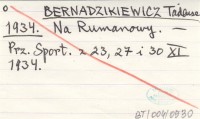 o BERNADZIKIEWICZ Tadeusz
1934. Na Rumanowy. —
Prz. Sport. z 23, 27 i 30 XI
1934.
BT/004/0530